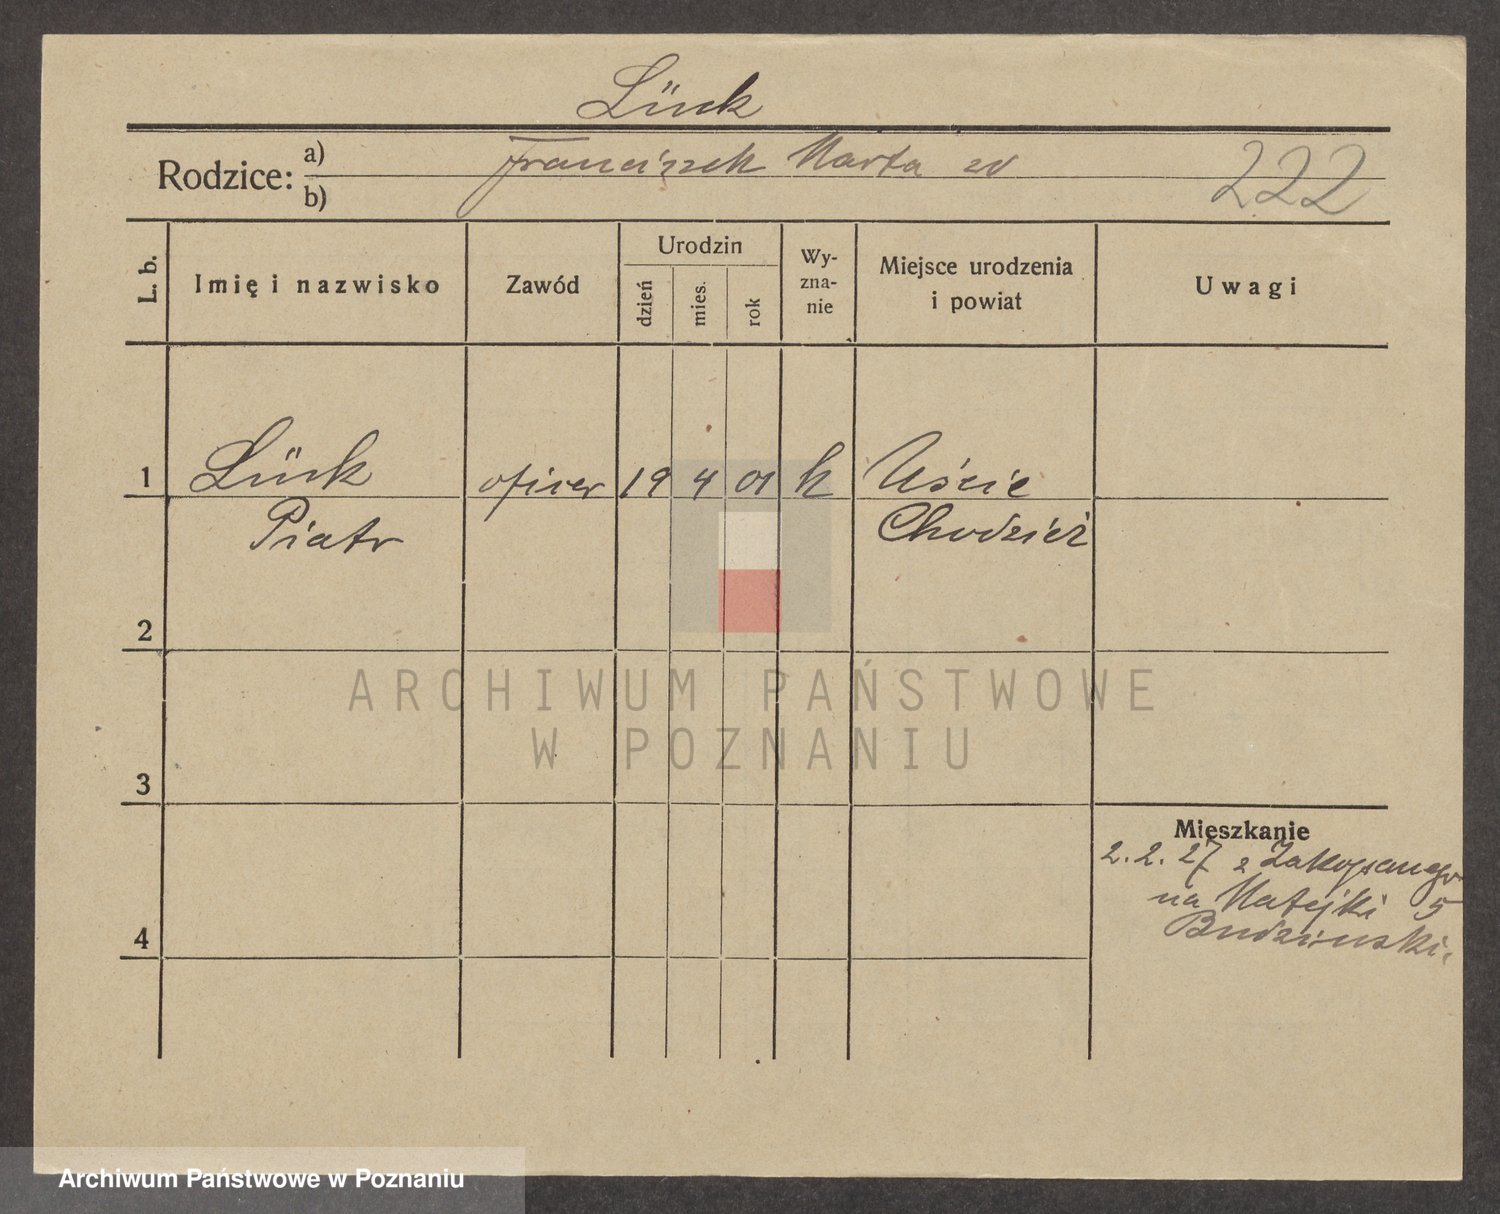 Lück
Rodzice: a) Franciszek Marta zd
b)
222
L. b.
Imię i nazwisko
Zawód
Urodzin
dzień
mies.
rok
Wy-
zna-
nie
Miejsce urodzenia
i powiat
Uwagi
1 Lück oficer 19 4 01 k Uście
Piotr Chodzież
2
3
4
Mieszkanie
2. 2. 27 z Zakopanego
na Matejki 5
Budziński.
ARCHIWUM PAŃSTWOWE
W POZNANIU
Archiwum Państwowe w Poznaniu